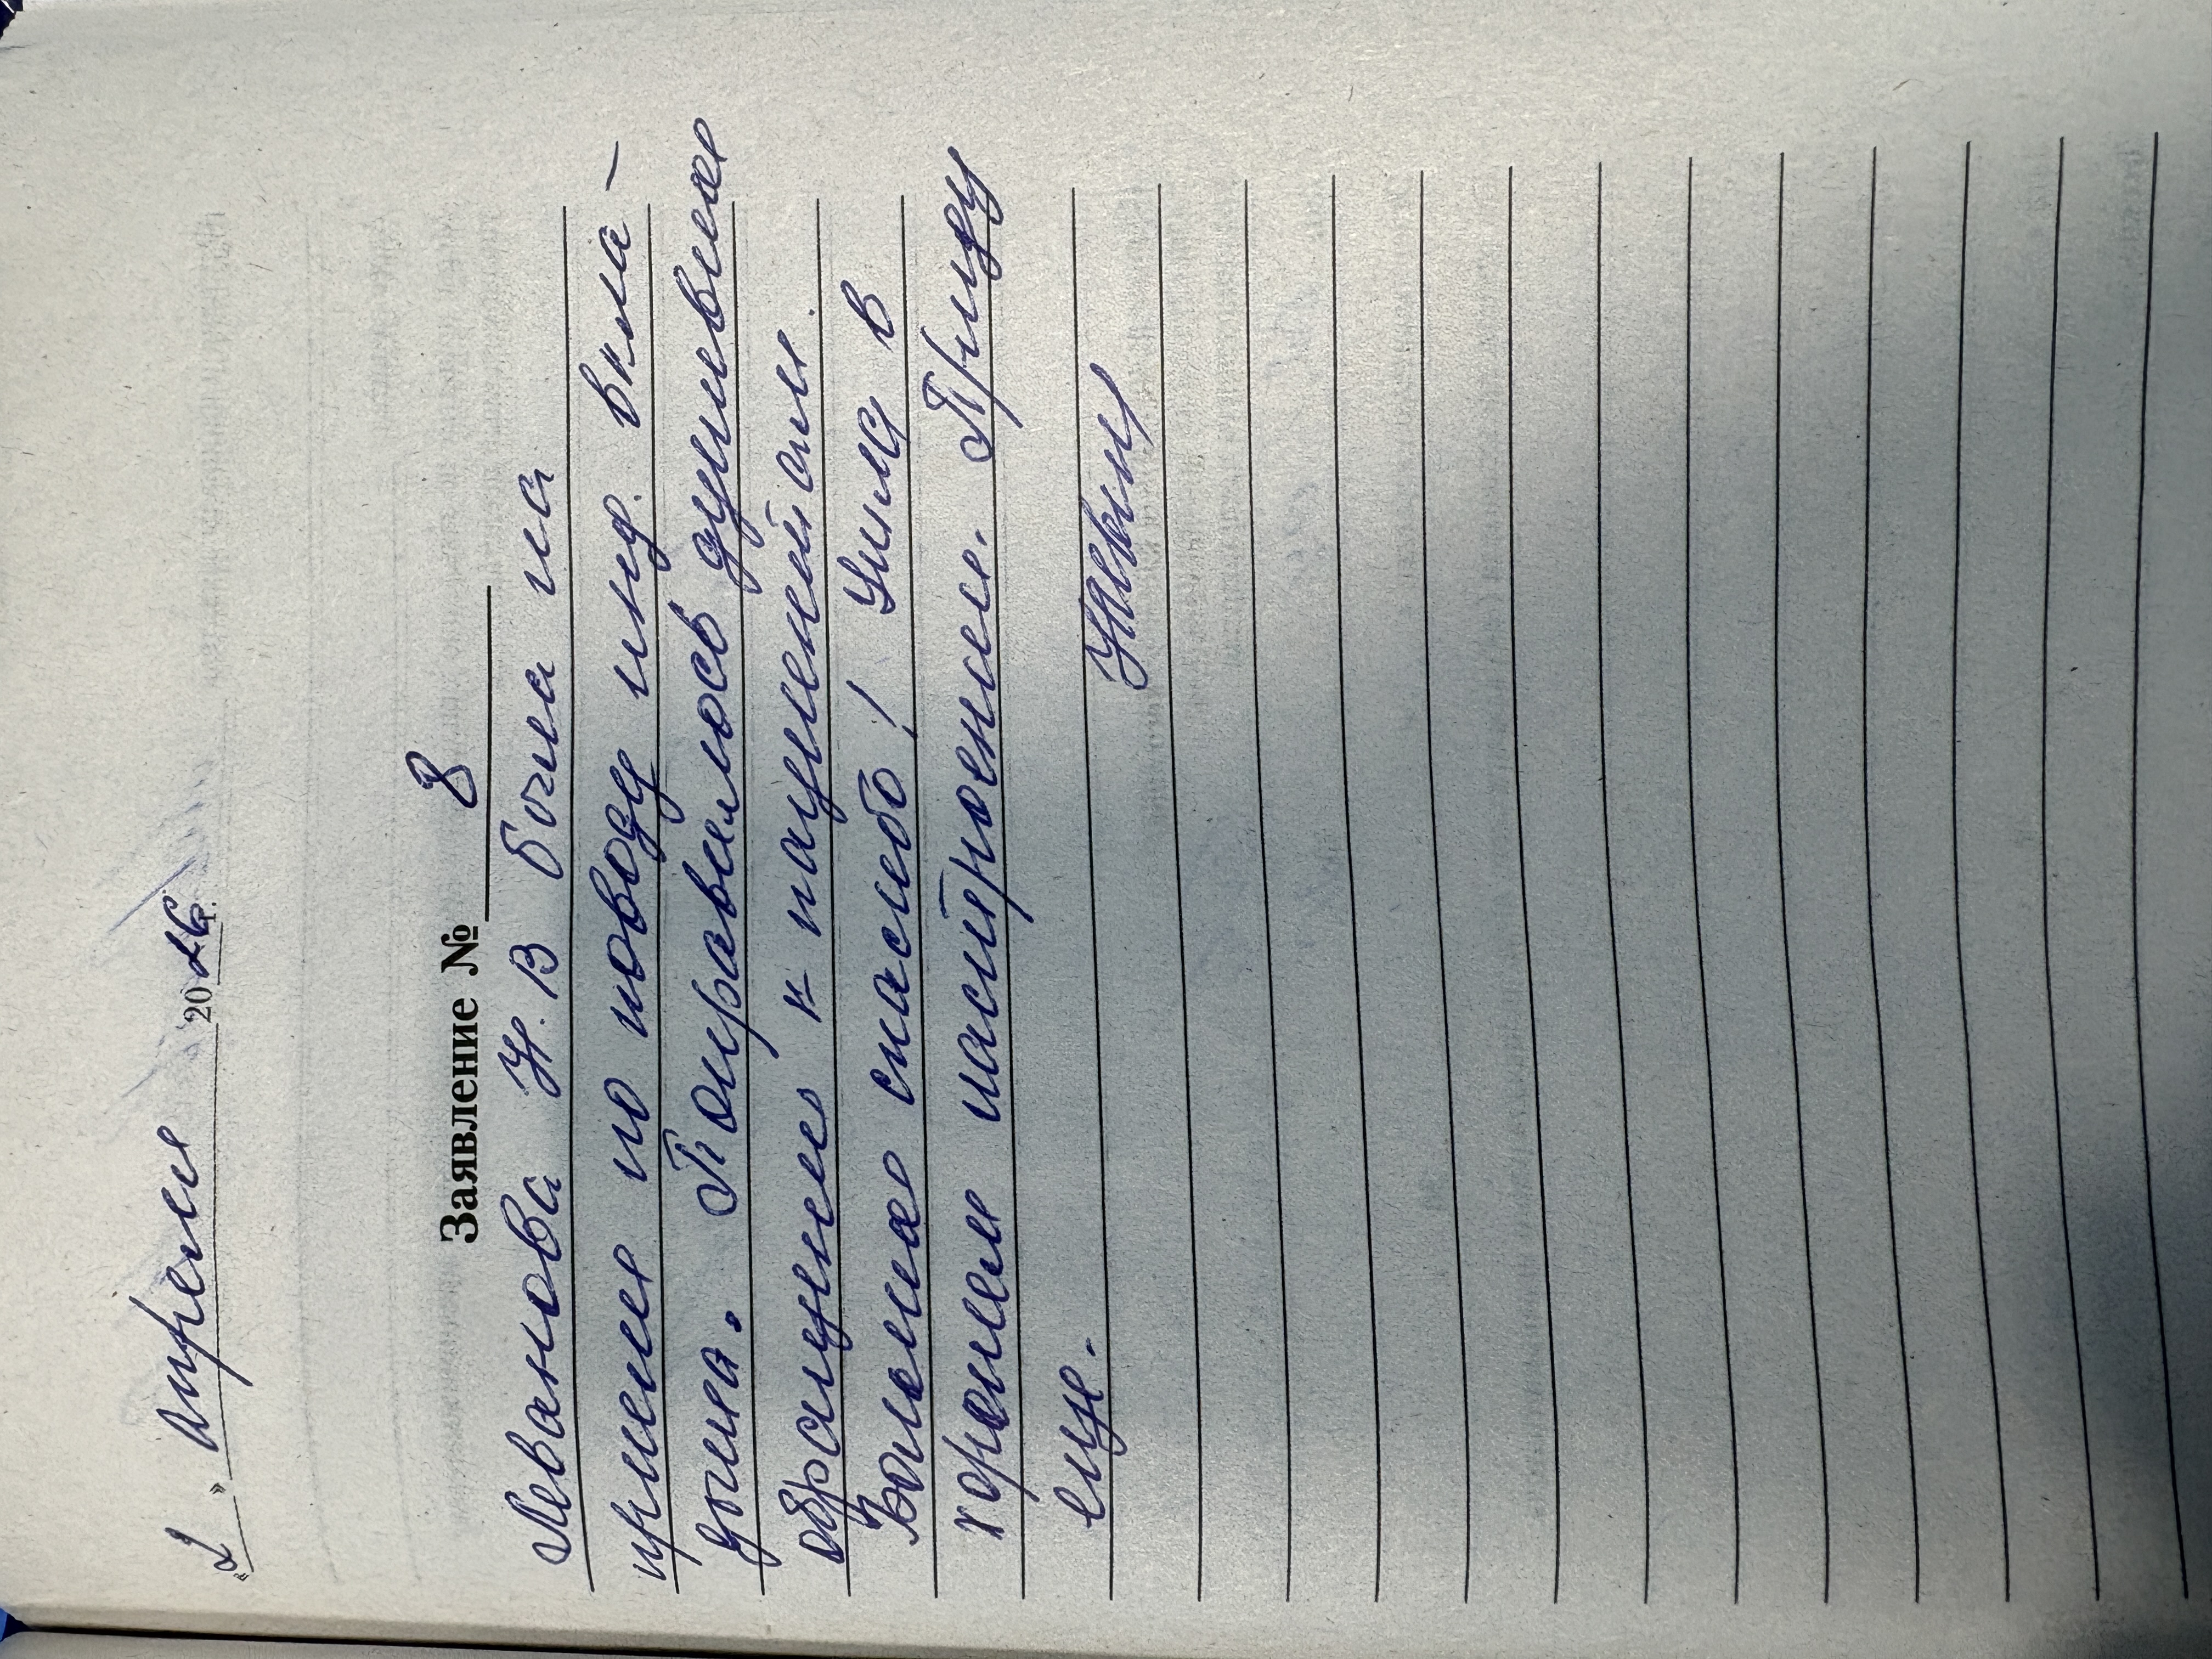 "2" апреля 2026 г.
Заявление № 8
Леванова Н.В была на
приеме по поводу инд. вкла-
дыша. Понравилось душевное
обращение к пациентам.
Большое спасибо! Ушла в
хорошем настроении. Приду
еще.